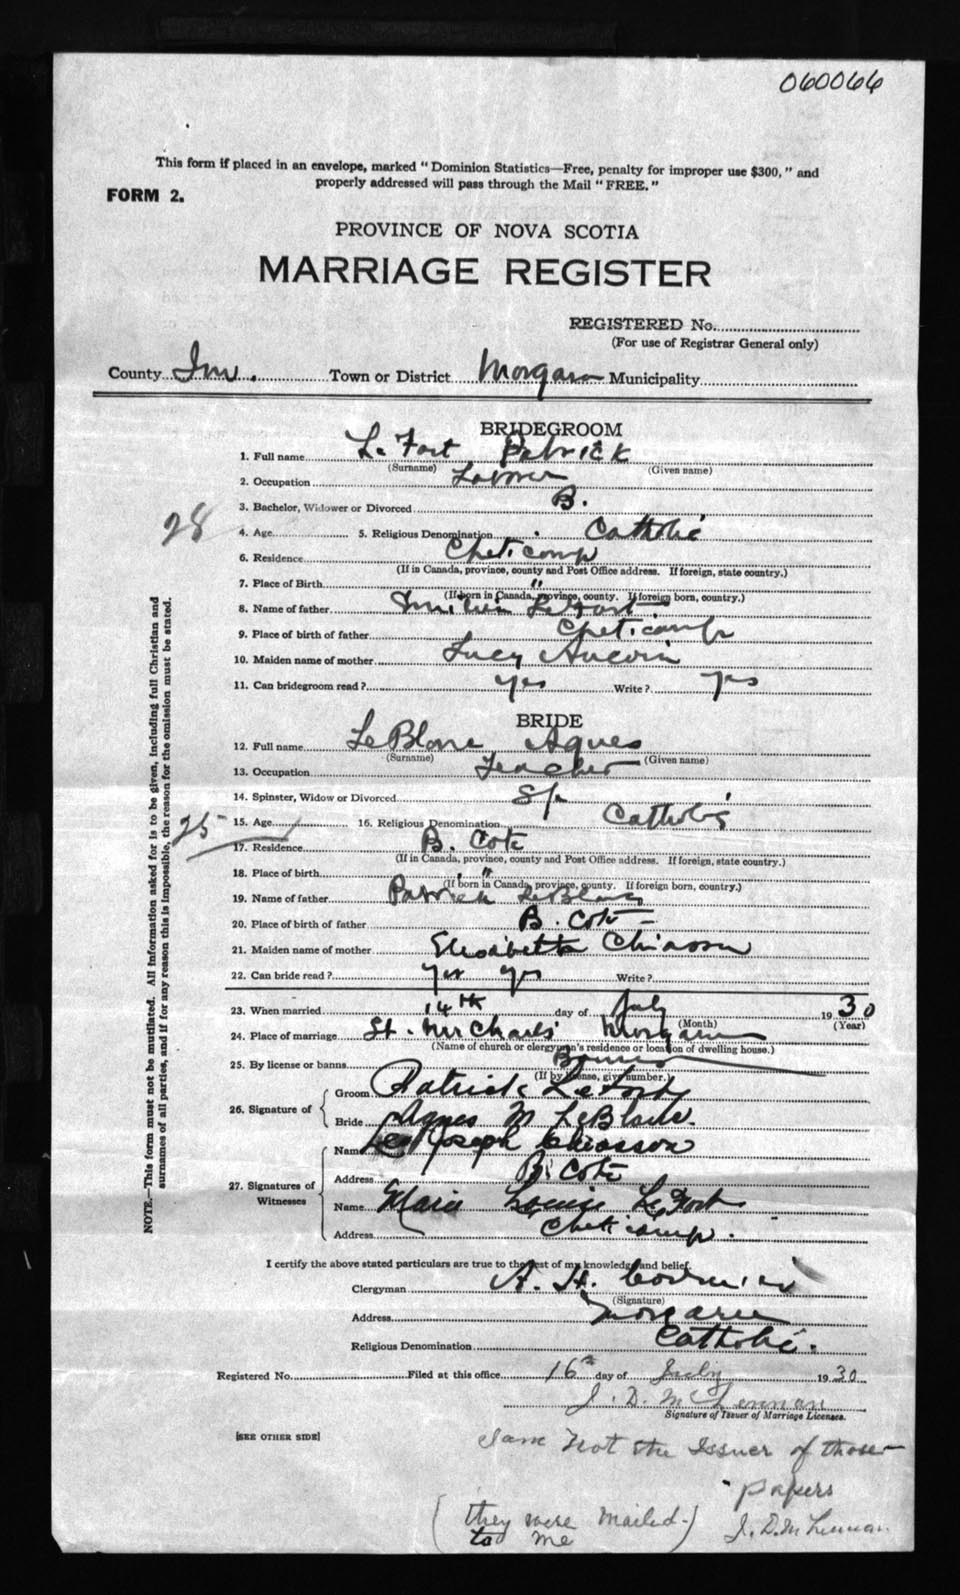 060066
This form if placed in an envelope, marked " Dominion Statistics—Free, penalty for improper use $300, " and
properly addressed will pass through the Mail " FREE. "
FORM 2.
PROVINCE OF NOVA SCOTIA
MARRIAGE REGISTER
REGISTERED No.
(For use of Registrar General only)
County Inv. Town or District Margaree Municipality
BRIDEGROOM
1. Full name LeFort Patrick
(Surname) (Given name)
2. Occupation Laborer
3. Bachelor, Widower or Divorced B.
28 4. Age 5. Religious Denomination Catholic
6. Residence Cheticamp
(If in Canada, province, county and Post Office address. If foreign, state country.)
7. Place of Birth "
(If born in Canada, province, county. If foreign born, country.)
8. Name of father LeFort
9. Place of birth of father Cheticamp
10. Maiden name of mother Lucy Aucoin
11. Can bridegroom read ? yes Write ? yes
BRIDE
12. Full name LeBlanc Agnes
(Surname) (Given name)
13. Occupation Teacher
14. Spinster, Widow or Divorced Sp
25 15. Age 16. Religious Denomination Catholic
17. Residence B. Cote
(If in Canada, province, county and Post Office address. If foreign, state country.)
18. Place of birth " "
(If born in Canada, province, county. If foreign born, country.)
19. Name of father Patrick LeBlanc
20. Place of birth of father B. Cote
21. Maiden name of mother Elisabeth Chiasson
22. Can bride read ? yes yes Write ?
23. When married 14th day of July 1930
(Month) (Year)
24. Place of marriage St. Michaels' Margaree
(Name of church or clergyman's residence or location of dwelling house.)
25. By license or banns Banns
(If by license, give number.)
26. Signature of
Groom Patrick LeFort
Bride Agnes M LeBlanc.
27. Signatures of Witnesses
Name Leo Joseph Chiasson
Address B. Cote
Name Marie Louise LeFort
Address Cheticamp.
I certify the above stated particulars are true to the best of my knowledge and belief.
Clergyman A. H. Cormier
(Signature)
Address Margaree
Religious Denomination Catholic.
Registered No. Filed at this office 16th day of July 1930
J. D. McLennan
Signature of Issuer of Marriage Licenses.
[SEE OTHER SIDE]
I am Not the Issuer of those
papers
(they were mailed
to me) J. D. McLennan
NOTE.—This form must not be mutilated. All information asked for is to be given, including full Christian and
surnames of all parties, and if for any reason this is impossible, the reason for the omission must be stated.